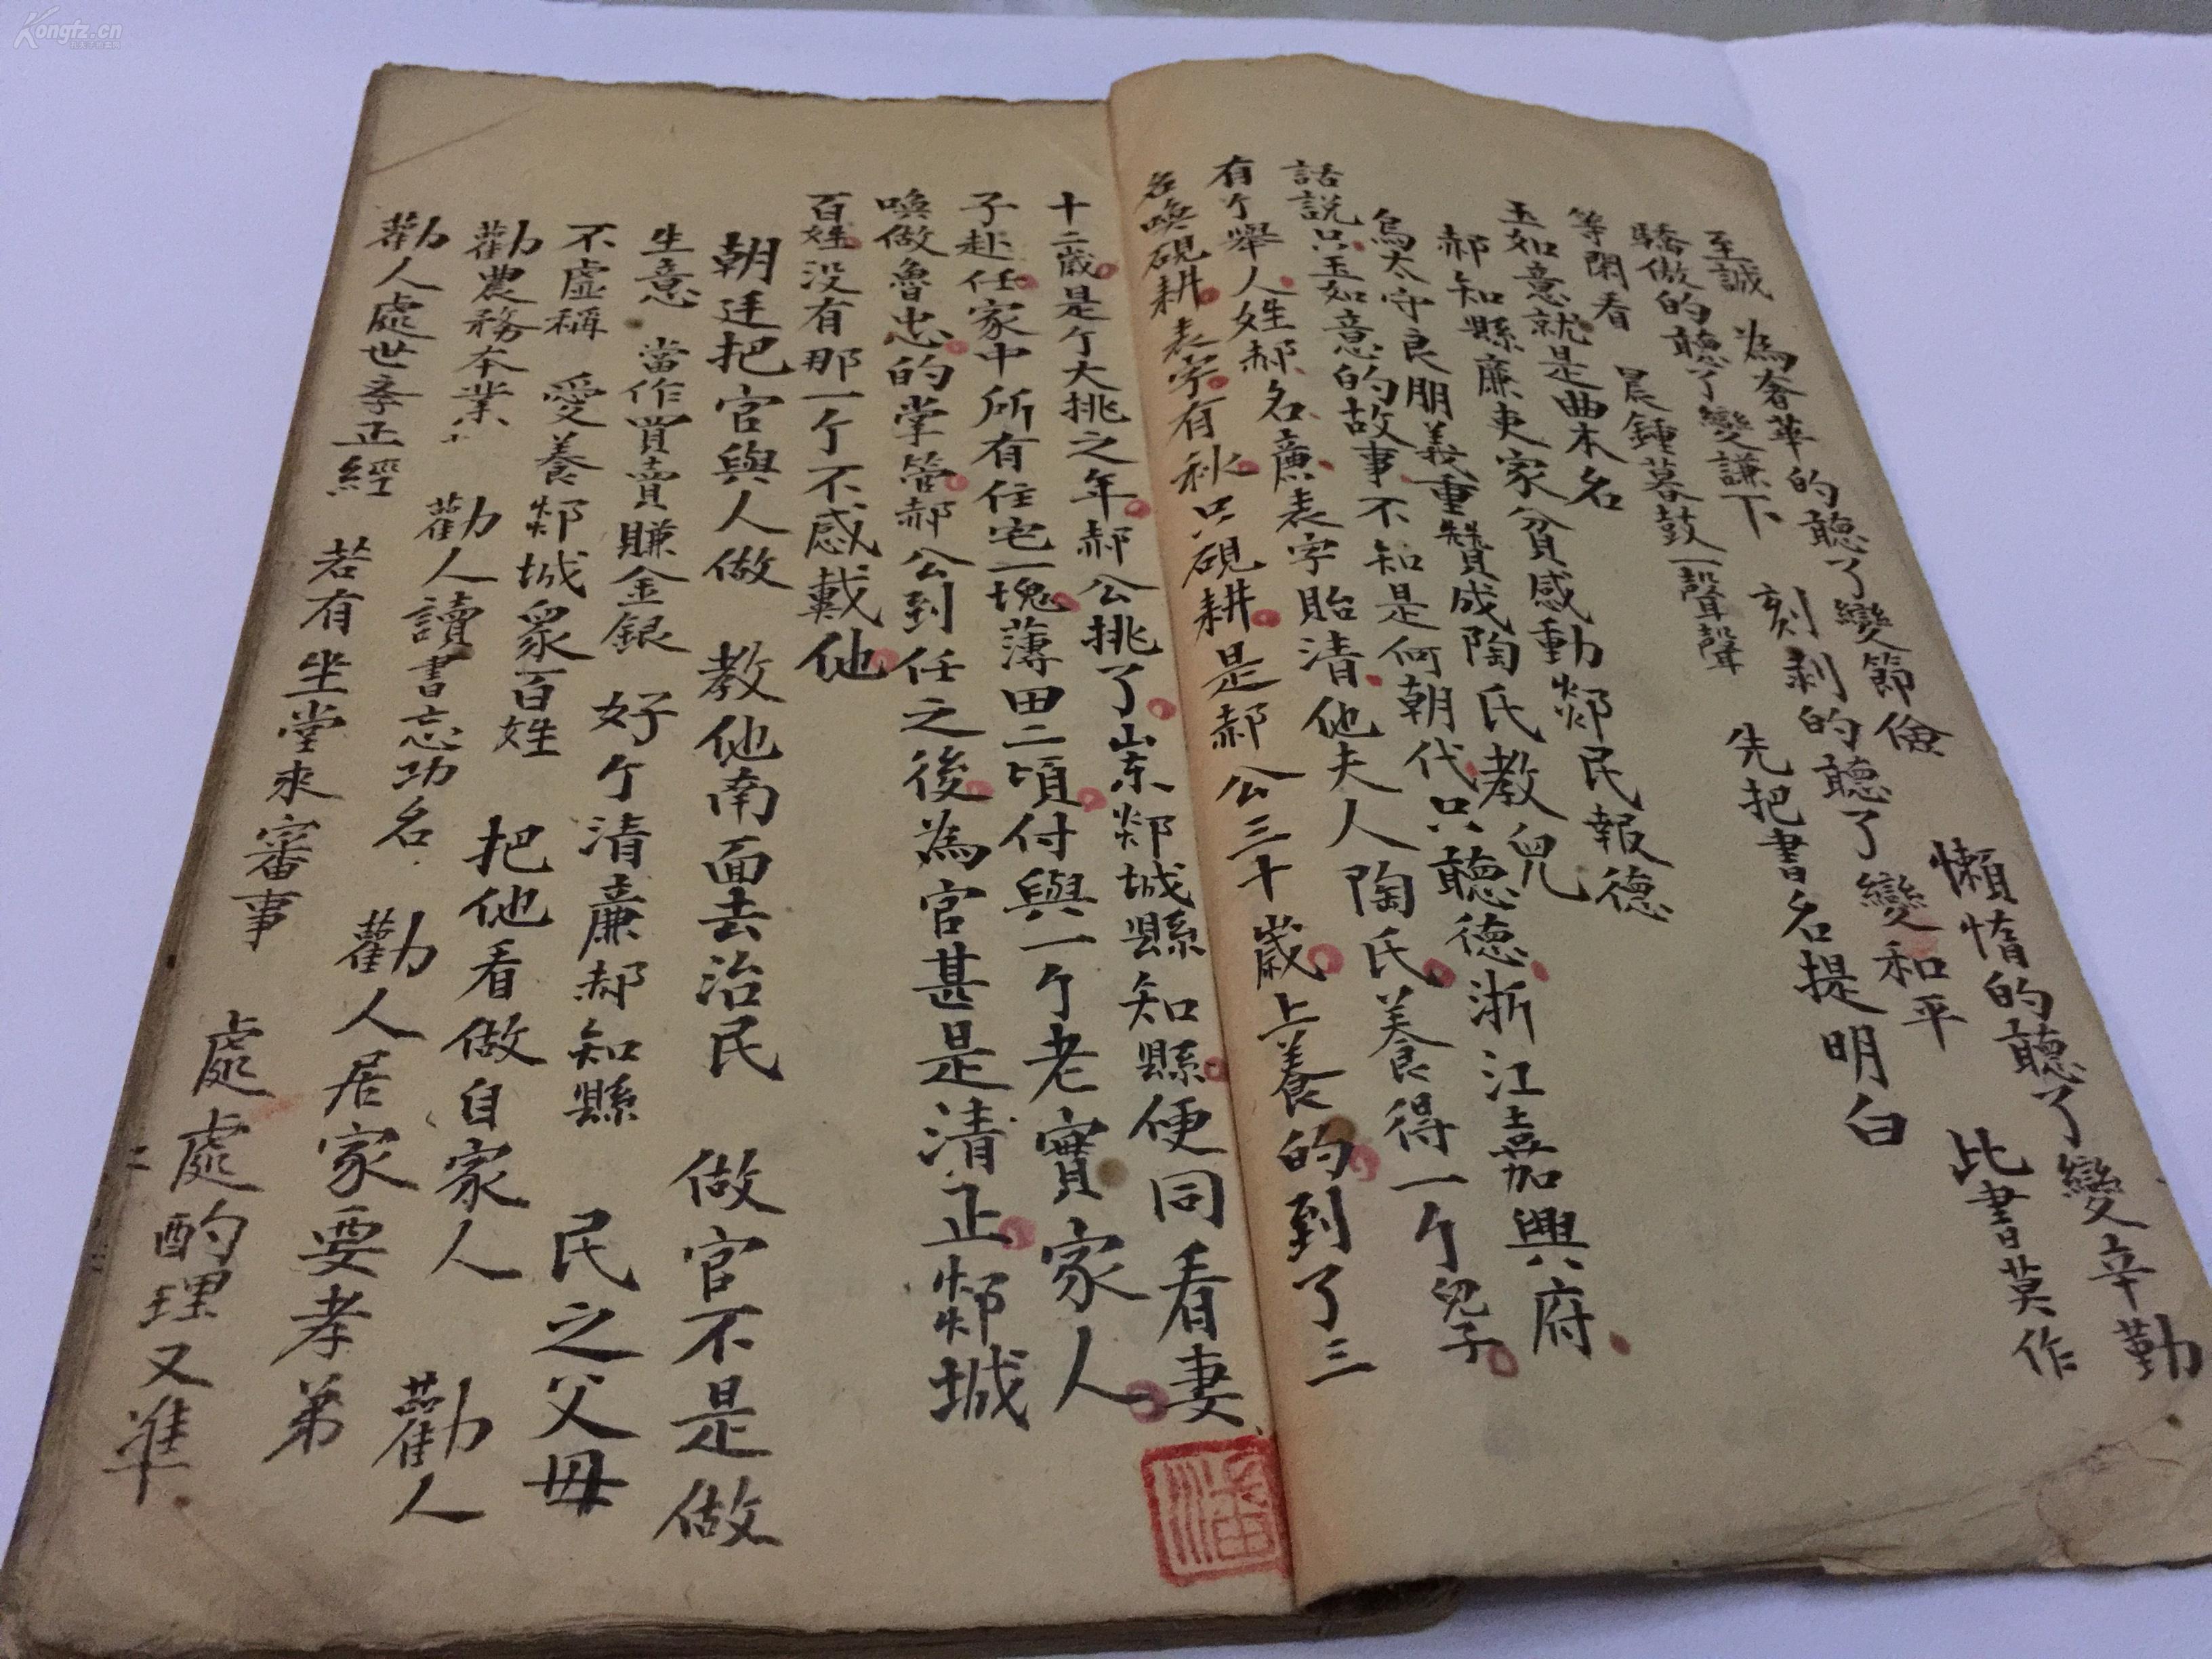 至誠　為奢華的聽了變節儉　懶惰的聽了變辛勤
驕傲的聽了變謙下　刻剥的聽了變和平　此書莫作
等閑看　晨鍾暮鼓一聲聲　先把書名提明白
玉如意就是曲本名
郝知縣廉吏家貧感動郯民報德
烏太守良朋義重贊成陶氏教兒
話説只玉如意的故事不知是何朝代只聽德浙江嘉興府
有个舉人姓郝名廉表字貽清他夫人陶氏養得一个兒子
名喚硯耕表字有秋只硯耕是郝公三十歲上養的到了三
十二歲是个大挑之年郝公挑了山东郯城縣知縣便同看妻
子赴任家中所有住宅一塊薄田二頃付與一个老實家人
喚做魯忠的掌管郝公到任之後為官甚是清正郯城
百姓没有那一个不感戴他
朝廷把官與人做　教他南面去治民　做官不是做
生意　當作買賣賺金銀　好个清廉郝知縣　民之父母
不虚稱　愛養郯城眾百姓　把他看做自家人　勸人
勸農務本業　勸人讀書忘功名　勸人居家要孝弟
勸人處世季正經　若有坐堂來審事　處處酌理又準
潘
Kongfz.cn